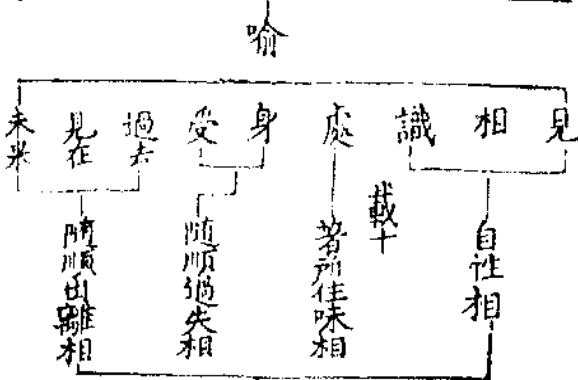 喻
見
相
識
處
身
受
過去
見在
未來
自性相
載十
著所住味相
隨順過失相
隨順出離相